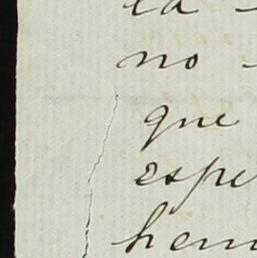 no
que
espe
hem